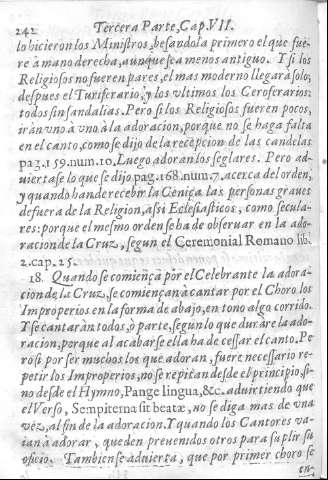 242 Tercera Parte, Cap. VII.
lo hicieron los Ministros, besandola primero el que fue-
re à mano derecha, aunque sea menos antiguo. Y si los
Religiosos no fueren pares, el mas moderno llegarà solo,
despues el Turiferario, y los vltimos los Ceroferarios:
todos sin sandalias. Pero si los Religiosos fueren pocos,
iràn vno à vno à la adoracion, porque no se haga falta
en el canto, como se dijo de la recepcion de las candelas
pag. 159. num. 10. Luego adoran los seglares. Pero ad-
uiertase lo que se dijo pag. 168. num. 7. acerca del orden,
y quando han de recebir la Ceniça las personas graues
de fuera de la Religion, assi Eclesiasticos, como secula-
res: porque el mesmo orden se ha de obseruar en la ado-
racion de la Cruz, segun el Ceremonial Romano lib.
2. cap. 25.
18. Quando se comiença por el Celebrante la adora-
cion de la Cruz, se comiençan à cantar por el Choro los
Improperios en la forma de abajo, en tono algo corrido.
Y se cantaràn todos, ò parte, segun lo que durare la ado-
racion, porque al acabarse ella ha de cessar el canto. Pe-
rò si por ser muchos los que adoran, fuere necessario re-
petir los Improperios, no se repitan desde el principio, si-
no desde el Hymno, Pange lingua, &c. aduirtiendo que
el Verso, Sempiterna sit beatæ, no se diga mas de vna
vez, al fin de la adoracion. Y quando los Cantores va-
ian à adorar, queden preuenidos otros para suplir su
oficio. Tambien se aduierta, que por primer choro se
en-